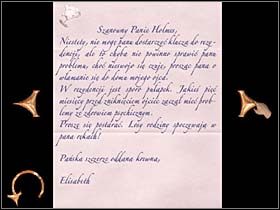 Szanowny Panie Holmes,
Niestety, nie mogę panu dostarczyć klucza do rezy-
dencji, ale to chyba nie powinno sprawić panu
problemu, choć nieswojo się czuję, prosząc pana o
włamanie się do domu mojego ojca.
W rezydencji jest sporo pułapek. Jakieś pięć
miesięcy przed zniknięciem ojciec zaczął mieć prob-
lemy ze zdrowiem psychicznym.
Proszę się postarać. Losy rodziny spoczywają w
pana rękach!
Pańska szczerze oddana krewna,
Elisabeth